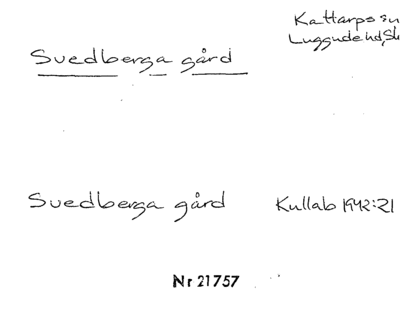 Kattarps sn
Luggude hd, Sk
Svedberga gård
Svedberga gård Kullab 1942:21
Nr 21757